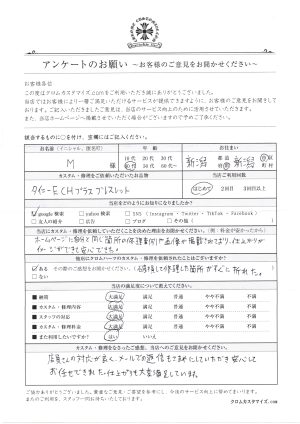 アンケートのお願い ～お客様のご意見をお聞かせください～
お客様各位
この度はクロムカスタマイズ.comをご利用いただき誠にありがとうございました。
当店ではお客様により一層ご満足いただけるサービスが提供できますように、お客様のご意見をお聞きして
おります。ご記入いただきましたご意見は、当店のサービス向上のために活用させていただきます。
また、当店ホームページへ掲載させていただく場合がございますので予めご了承ください。
該当するものに○を付け、空欄にはご記入ください。
お名前（イニシャル、仮名可） 年齢 お住まい
M 様 10代 20代 30代 40代 50代 60代～ 新潟 都道府県 新潟 市区町村
カスタム・修理をご依頼いただいたお品物 当店ご利用回数
タイニーE CHプラス ブレスレット はじめて 2回目 3回目以上
当店をどのようにお知りになりましたか？
google検索 yahoo検索 SNS（Instagram・Twitter・TikTok・Facebook）
友人の紹介 広告 ブログ その他（ ）
カスタム・修理を依頼していただくことを決めた理由をお聞かせください。
ホームページに自分と同じ箇所の修理事例や画像が掲載されており、仕上がりが
イメージができて安心できた。
他別にクロムハーツのカスタム・修理を依頼されたことはございますか？
ある その際のご感想をお聞かせください。
当店の満足度について教えてください。
納期 大満足 満足 普通 やや不満 不満
カスタム・修理内容 大満足 満足 普通 やや不満 不満
スタッフの対応 大満足 満足 普通 やや不満 不満
カスタム・修理料金 大満足 満足 普通 やや不満 不満
また利用したいですか？ はい いいえ
カスタム・修理をなさったご感想、当店へのご意見をお聞かせください。
店員さんの対応が良く、メールでの返信もこまめにしていただき安心して
お任せできました。仕上がりも大変満足しています。
ご協力ありがとうございました。貴重なご意見・ご要望を参考にし、今後のサービス向上に努めてまいります。
またのご利用を、スタッフ一同お待ちいたしております。
クロムカスタマイズ.com